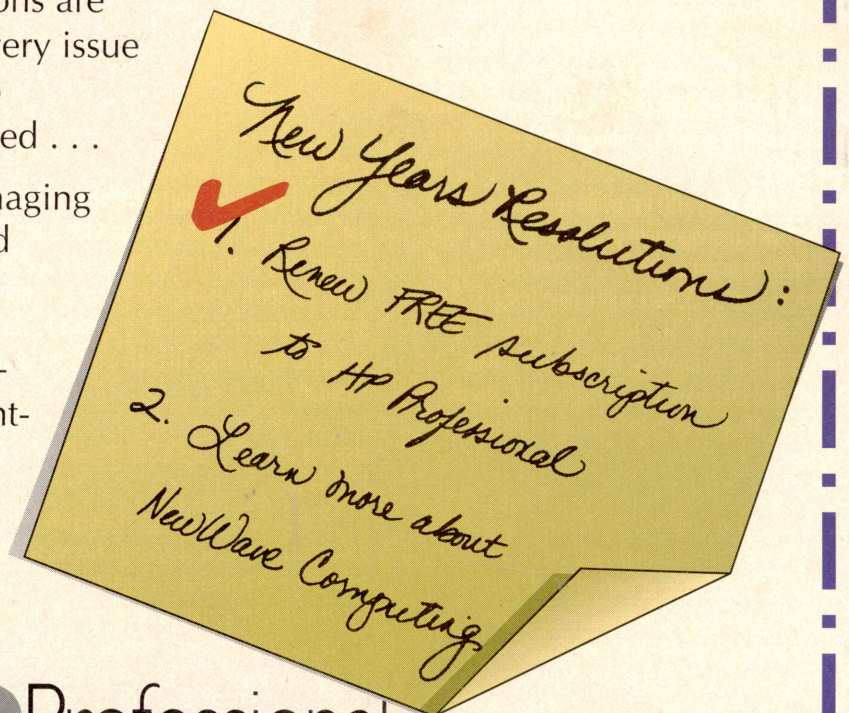 ons are
very issue
ed . . .
naging
d
-
nt-
New Years Resolutions:
1. Renew FREE subscription
to HP Professional
2. Learn more about
NewWave Computing
Professional